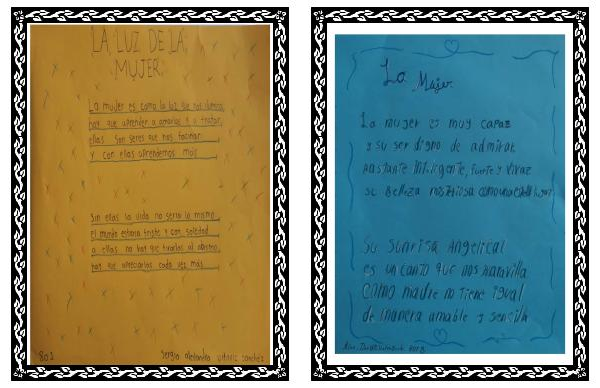 LA LUZ DE LA
MUJER
La mujer es como la luz que nos ilumina
hay que aprender a amarlas y a tratar
ellas Son seres que nos facinan
Y con ellas aprendemos más
Sin ellas la vida no sería lo mismo
el mundo estaria triste y con soledad
a ellas no hay que tirarlas al abismo
hay que apreciarlas cada vez más
801
Sergio alejandro sanchez
La Mujer
La mujer es muy capaz
y su ser digno de admirar
bastante inteligente, fuerte y vivaz
su Belleza
Su Sonrisa Angelical
es un canto que nos maravilla
como madre no tiene igual
de manera amable y sencilla